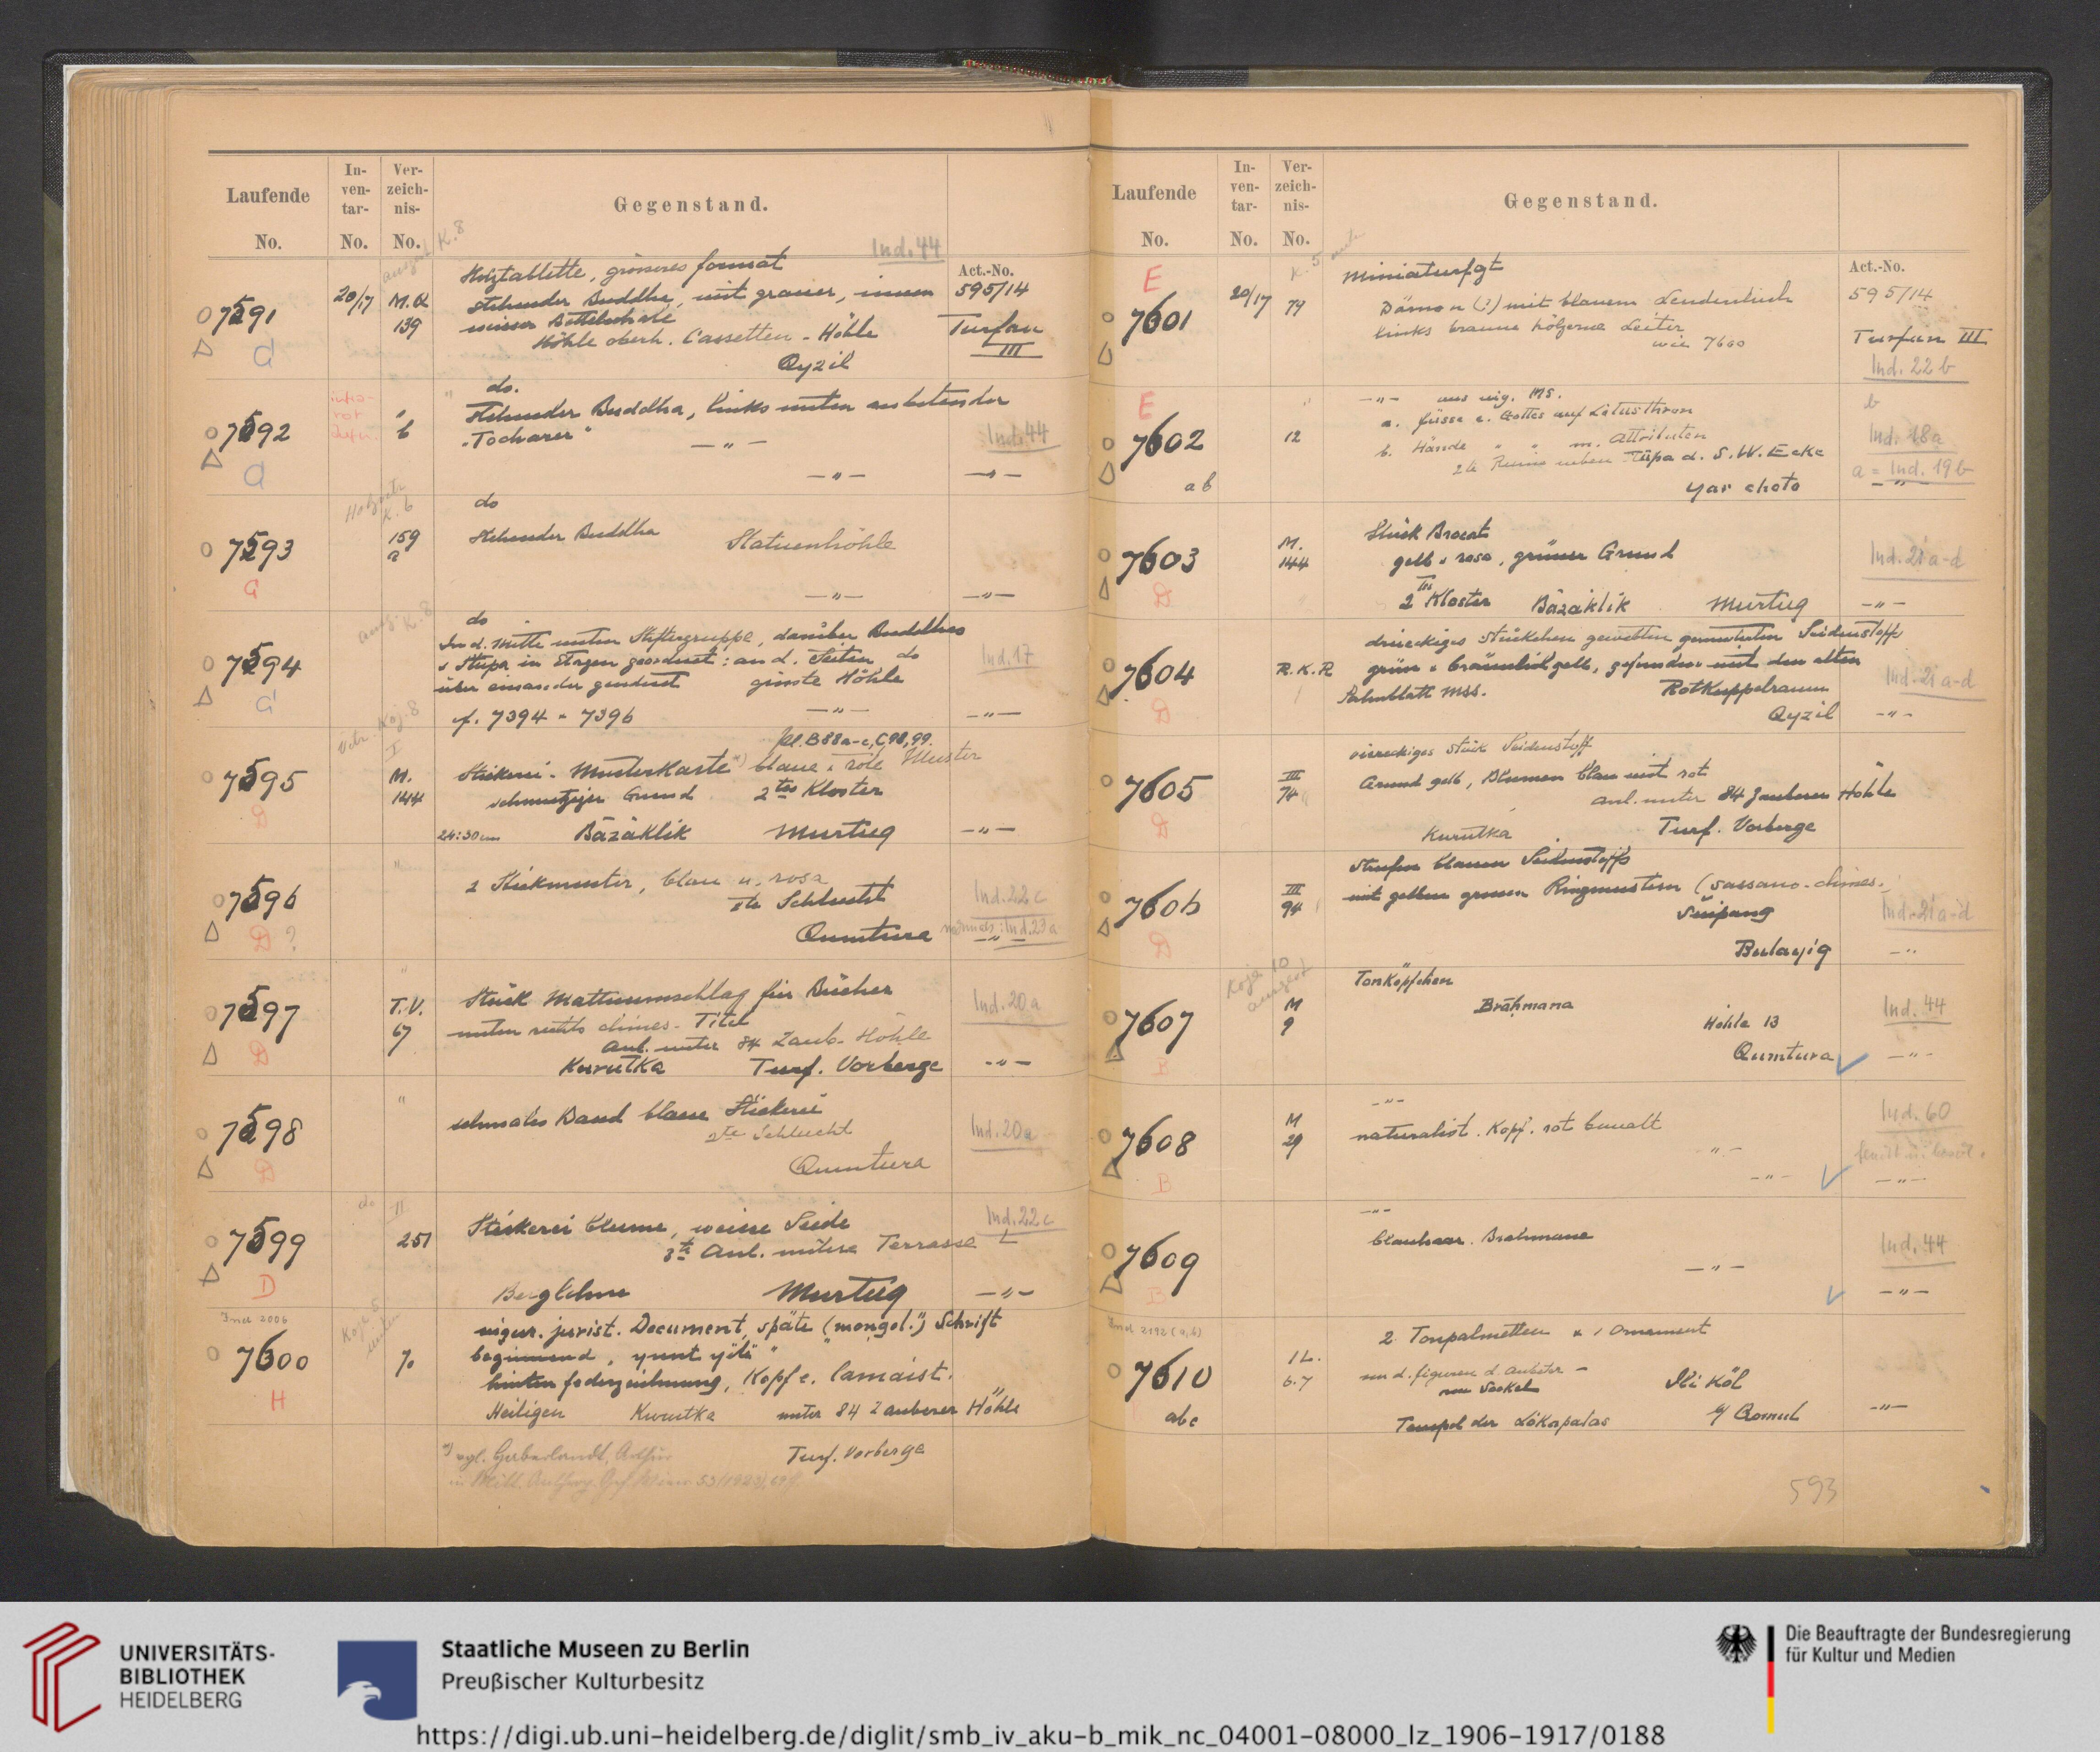 Laufende No.
In-ven-tar- No.
Ver-zeich-nis- No.
Gegenstand.
K.8
Ind. 44
Act.-No.
7591
20/17
M.Q.
139
Holztablette, grösseres format
stehender Buddha, mit grauer, innen
weisser Bettelschale
Höhle oberh. Cassetten - Höhle
Qyzil
595/14
Turfan
III
7592
b
do.
stehender Buddha, links unten anbetender
"Tocharer" — " —
— " —
Ind. 44
— " —
7593
K. 6
159
a
do
stehender Buddha Statuenhöhle
— " —
— " —
G
7594
K. 8
do
In d. Mitte unten Stiftergruppe, darüber Buddhas
u Stupa in Etagen geordnet: an d. Seiten do
über einander geordnet
Höhle
cf. 7394 - 7396
— " —
Ind. 17
— " —
G
7595
I
M.
144
B88a-c, C98,99.
Stickerei-Musterkarte *) blaue u. rote Muster
schmutziger Grund 2tes Kloster
24:30cm Bäzäklik Murtuq
— " —
D
7596
"
2 Stickmuster, blau u. rosa
IIte Schlucht
Qumtura
Ind. 22 c
Ind. 23 a
— " —
D ?
7597
"
T.V.
67
Stück Mattenumschlag für Bücher
unten rechts chines. Titel
Anl. unter 84 Zaub. Höhle
Kurutka Turf. Vorberge
Ind. 20 a
— " —
D
7598
"
schmales Band blaue Stickerei
2te Schlucht
Qumtura
Ind. 20 a
D
7599
do
II
251
Stickerei blume, weisse Seide
3te Anl. mitlere Terrasse L
Berglehne Murtuq
Ind. 22 c
— " —
D
Ind 2006
7600
70
uigur. jurist. Document, späte (mongol.") Schrift
beginnend, "yunt yïlï"
hinten federzeichnung, Kopf e. lamaist.
Heiligen Kurutka unter 84 Zauberer Höhle
Turf. Vorberge
H
*) vgl. Haberlandt, Arthur
in Mitt. Anthrop. Ges. Wien 53 (1923), 69 f.
Laufende No.
In-ven-tar- No.
Ver-zeich-nis- No.
Gegenstand.
K. 5
Act.-No.
E
7601
20/17
74
Miniaturfgt
Dämon (?) mit blauem Lendentuch
links braune hölzerne Leiter
wie 7600
595/14
Turfan III
Ind. 22 b
E
7602
ab
12
— " — aus uig. MS.
a. füsse e. Gottes auf Lotusthron
b. Hände " " m. Attributen
2te Ruine neben Stüpa d. S.W. Ecke
Yar choto
b
Ind. 18a
a = Ind. 19 b
— " —
7603
M.
144
Stück Brocat
gelb u rosa, grüner Grund
2tes Kloster Bäzäklik Murtuq
Ind. 21 a-d
— " —
D
7604
R.K.R
dreieckiges Stückchen gewebten gemusterten Seidenstoffs
grün u bräunlichgelb, gefunden mit den alten
Palmblatt MSS. Rotkuppelraum
Qyzil
Ind. 21 a-d
— " —
D
7605
III
74
viereckiges Stück Seidenstoff
Grund gelb, Blumen blau mit rot
anl. unter 84 Zauberer Höhle
Kurutka Turf. Vorberge
D
7606
III
94
Streifen blauen Seidenstoffs
mit gelben grossen Ringmustern (sassano-chines.
Süipang
Bulayïq
Ind. 21 a-d
— "
D
7607
Koje 10
M
9
Tonköpfchen
Brāhmana
Höhle 13
Qumtura
Ind. 44
— " —
B
7608
M
29
— " —
naturalist. Kopf. rot bemalt
— " —
— " —
Ind. 60
— " —
B
7609
— " —
blauhaar. Brahmane
— " —
Ind. 44
— " —
B
Ind 2192 (a,b)
7610
abc
1L.
6.7
2 Tonpalmetten u 1 Ornament
von d. figuren d. Anbeter —
vom Sockel
Ili Köl
Tempel der Lokapalas b/ Qomul
— " —
593
UNIVERSITÄTS-
BIBLIOTHEK
HEIDELBERG
Staatliche Museen zu Berlin
Preußischer Kulturbesitz
Die Beauftragte der Bundesregierung
für Kultur und Medien
https://digi.ub.uni-heidelberg.de/diglit/smb_iv_aku-b_mik_nc_04001-08000_lz_1906-1917/0188